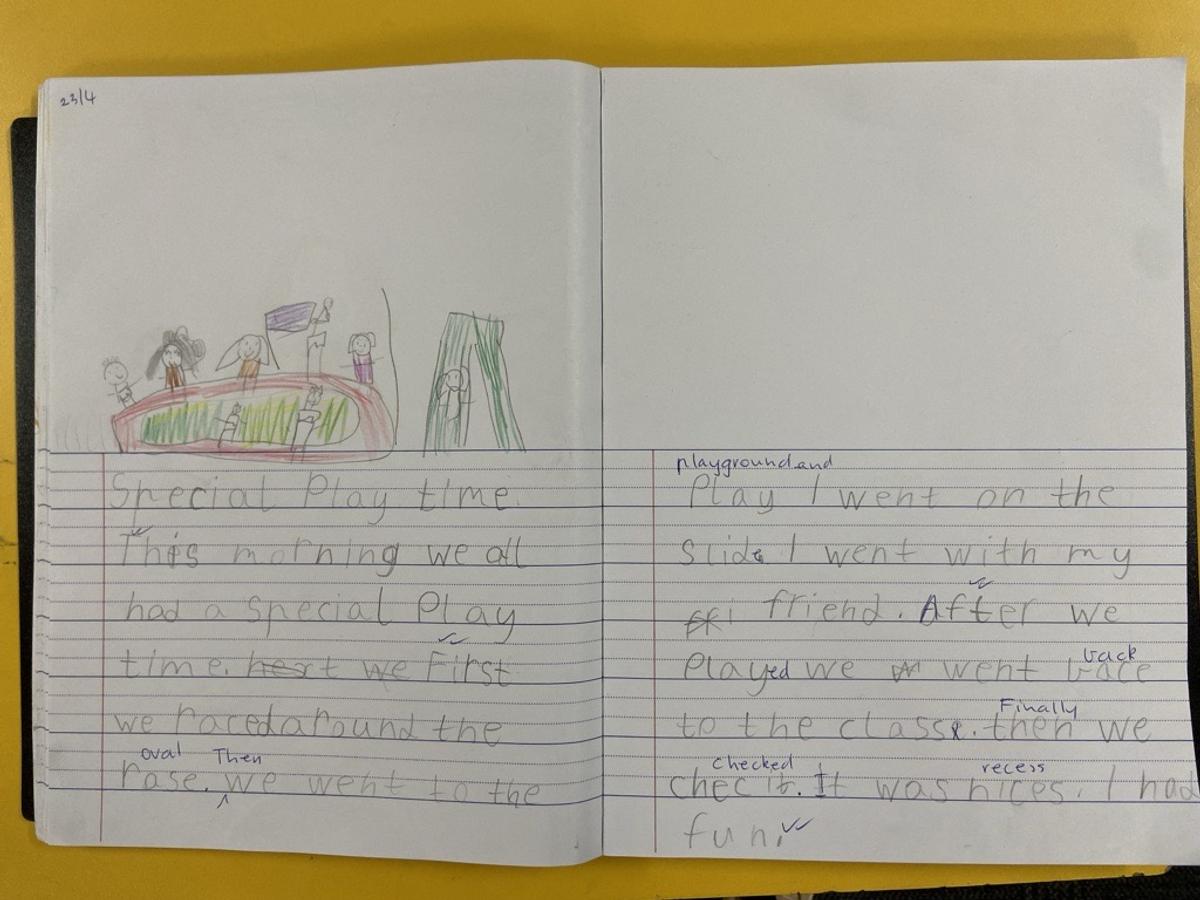 23/4
Special Play time.
This morning we all
had a special Play
time. hext we First
we raced around the
oval Then
rase. we went to the
playground and
Play I went on the
slide I went with my
friend. After we
Played we went bace
back
to the class. then we
Finally
checked recess
chec it. It was nices. I had
fun.